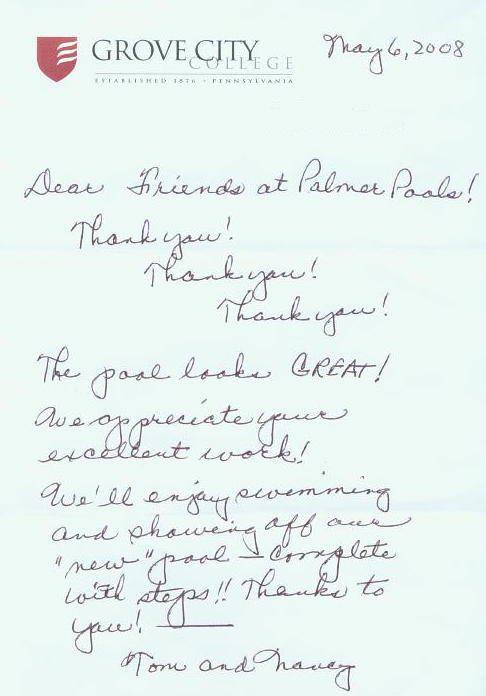 GROVE CITY
COLLEGE
ESTABLISHED 1876 • PENNSYLVANIA
May 6, 2008
Dear Friends at Palmer Pools!
Thank you!
Thank you!
Thank you!
The pool looks GREAT!
We appreciate your
excellent work!
We'll enjoy swimming
and showing off our
"new" pool — complete
with steps!! Thanks to
you! —
Tom and Nancy